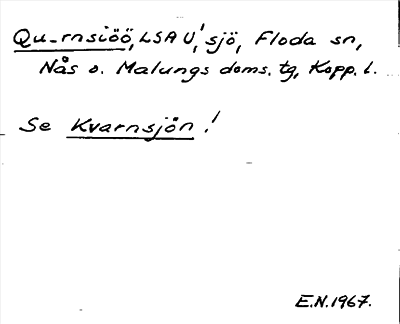 Qu-rnsiöö, LSA U, sjö, Floda sn,
Nås o. Malungs doms. tg, Kopp. l.
Se Kvarnsjön!
E.N.1967.